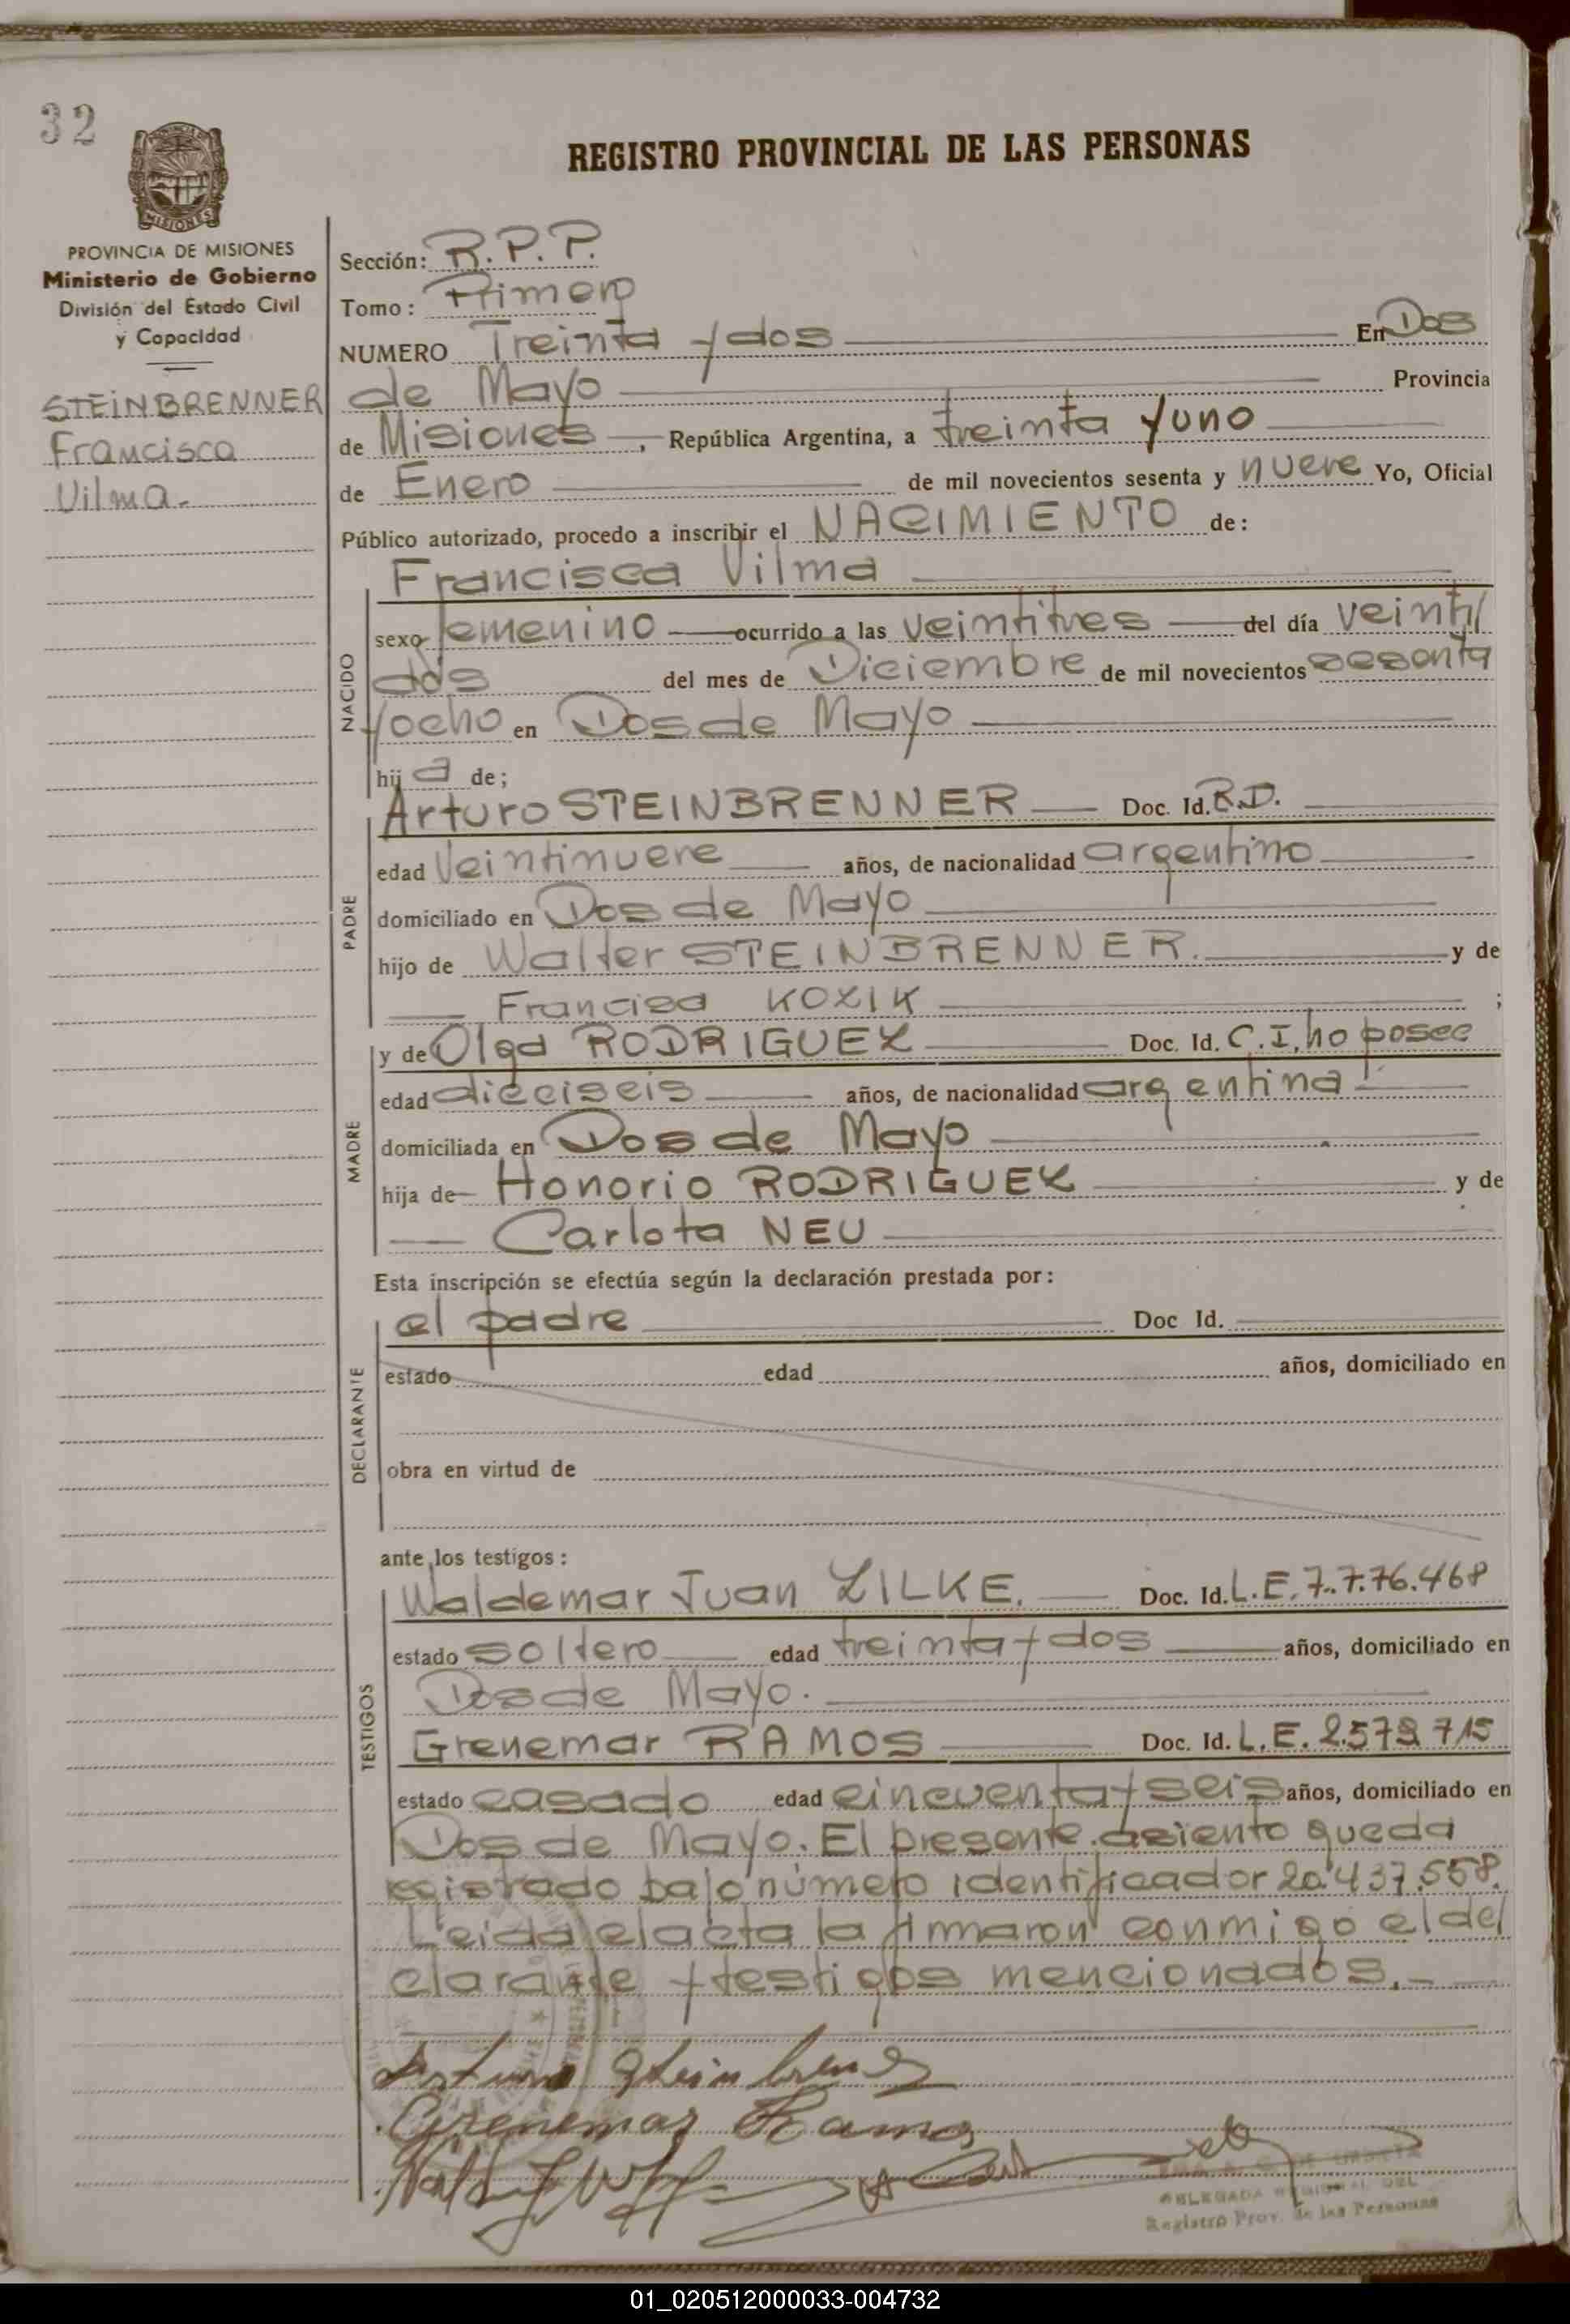 32
REGISTRO PROVINCIAL DE LAS PERSONAS
MISIONES
PROVINCIA DE MISIONES
Ministerio de Gobierno
División del Estado Civil
y Capacidad
STEINBRENNER
Francisca
Vilma.-
Sección: R.P.P.
Tomo: Primero
NUMERO Treinta y dos En Dos
de Mayo Provincia
de Misiones, República Argentina, a treinta y uno
de Enero de mil novecientos sesenta y nueve Yo, Oficial
Público autorizado, procedo a inscribir el NACIMIENTO de:
Francisca Vilma
NACIDO
sexo femenino ocurrido a las veintitres del día veinti/
dós del mes de Diciembre de mil novecientos sesenta
y ocho en Dos de Mayo
hij a de;
PADRE
Arturo STEINBRENNER Doc. Id. R.D.
edad Veintinueve años, de nacionalidad argentino
domiciliado en Dos de Mayo
hijo de Walter STEINBRENNER. y de
Francisca KOZIK ;
MADRE
y de Olga RODRIGUEZ Doc. Id. C.I. no posee
edad dieciseis años, de nacionalidad argentina
domiciliada en Dos de Mayo
hija de Honorio RODRIGUEZ y de
Carlota NEU
Esta inscripción se efectúa según la declaración prestada por:
DECLARANTE
el padre Doc Id.
estado edad años, domiciliado en
obra en virtud de
ante los testigos:
TESTIGOS
Waldemar Juan ZILKE. Doc. Id. L.E. 7.7.76.468
estado soltero edad treinta y dos años, domiciliado en
Dos de Mayo.
Grenemar RAMOS Doc. Id. L.E. 2.579.715
estado casado edad cincuenta y seis años, domiciliado en
Dos de Mayo. El presente asiento queda
registrado bajo número identificador 20.437.558.
Leída el acta la firmaron conmigo el de/
clarante y testigos mencionados.-
Arturo Steinbrener
Grenemar Ramos
DELEGADA DEL
Registro Prov. de las Personas
01_020512000033-004732